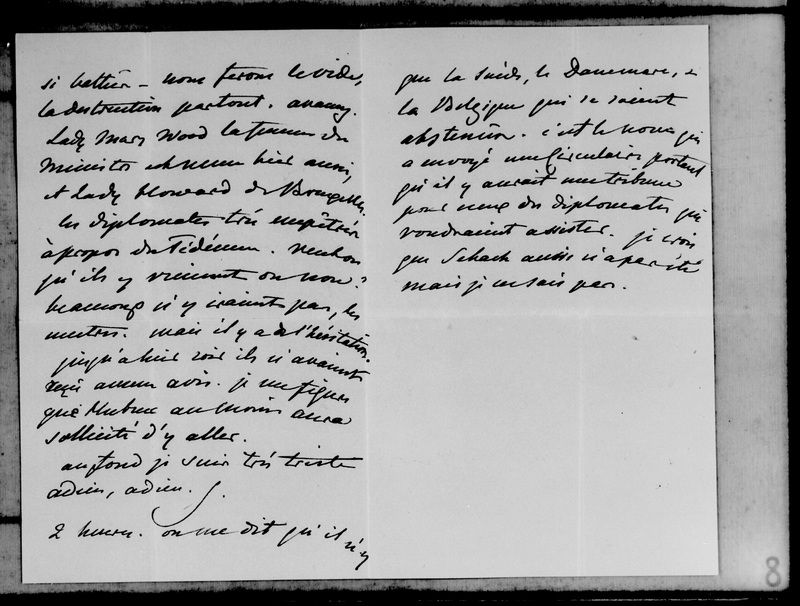 si bettin – nous ferons le vide,
la destruction partout.
Lady Mary Wood la femme du
Ministre est venue hier aussi,
et Lady Howard de Bruxelles.
les diplomates très
à propos du Tédéum. veut on
qu'ils y viennent ou non ?
beaucoup n'y iraient pas, les
autres. mais il y a de l'hésitation.
jusqu'à hier soir ils n'avaient
reçu aucun avis. je me figure
que Hubner au moins aura
sollicité d'y aller.
au fond je suis très triste
adieu, adieu.
2 heures. on me dit qu'il n'y
que la Suède, le Danemarc, &
la Belgique qui se soient
abstenus. c'est le nonce qui
a envoyé une circulaire portant
qu'il y aurait une tribune
pour ceux des diplomates qui
voudraient assister. je crois
que Schack aussi n'a pas été
mais je ne sais pas.
8